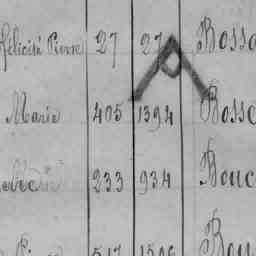 Félicité Pierre 27 27 Bosse
Marie 405 1394 Bosse
233 934 Bouc
517 1506 Bou